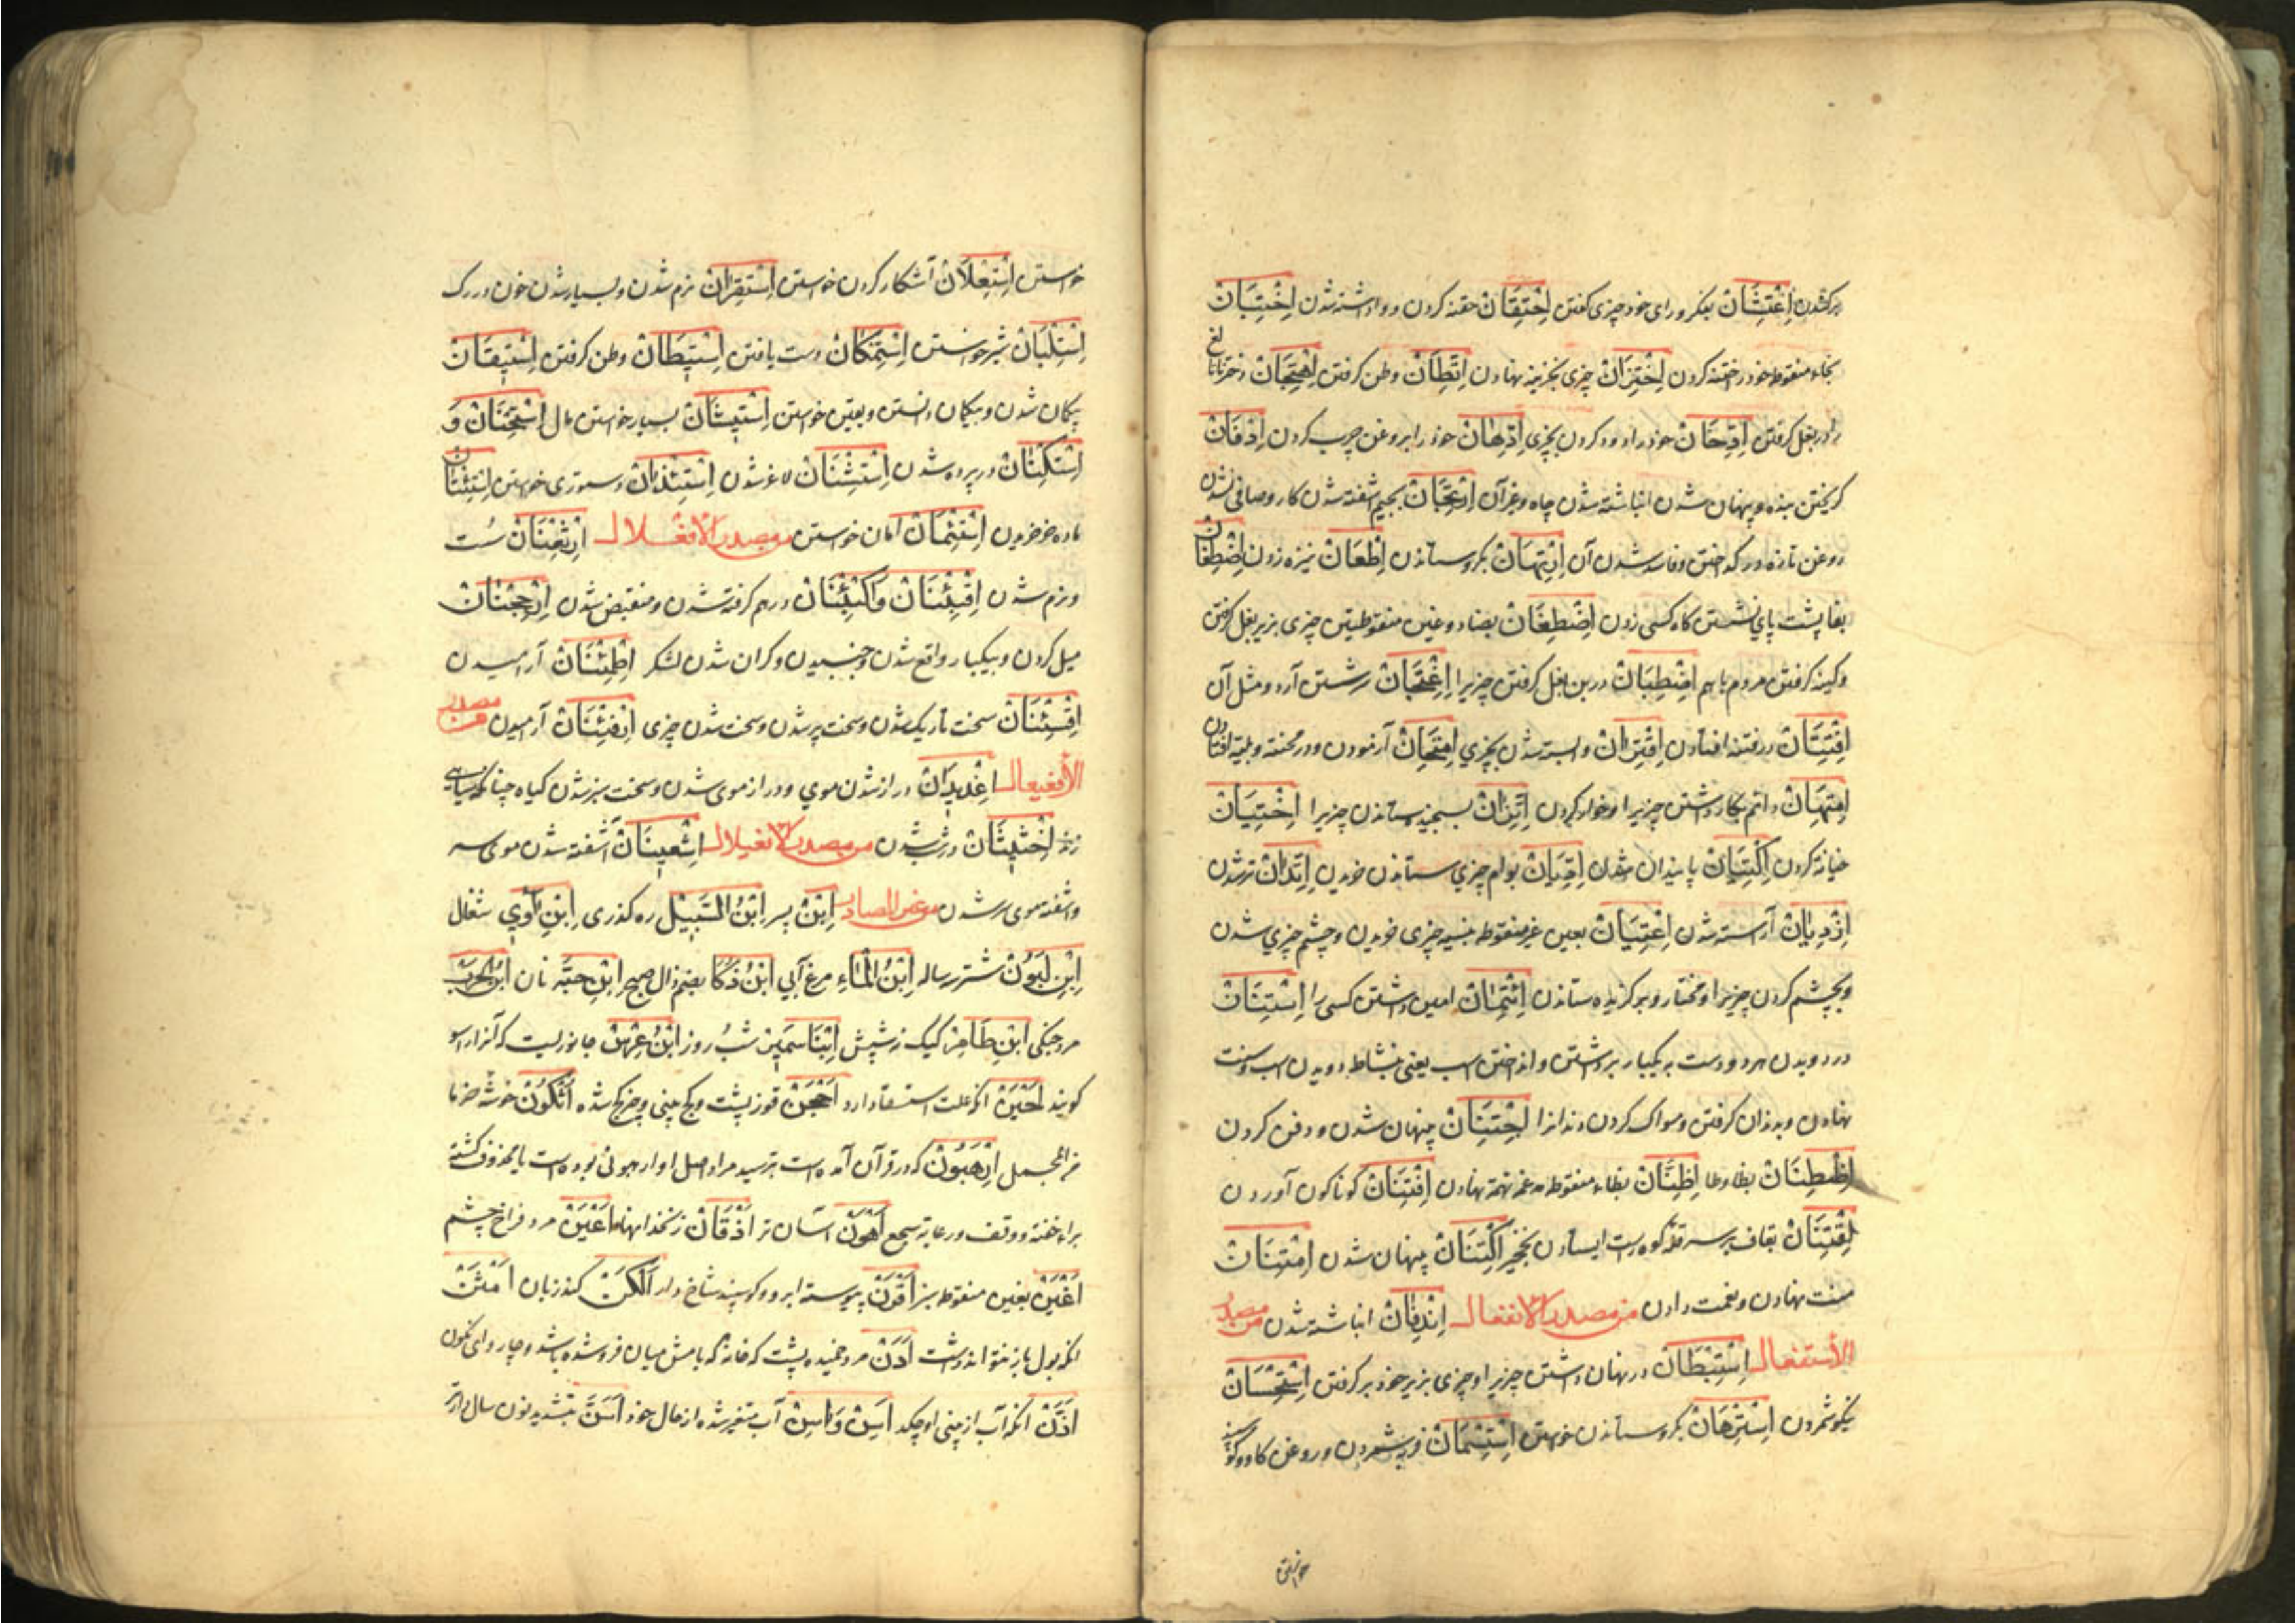 برکشیدن اِغْتِشَانْ بفکر و رای خود چیزی کفتن اِحْتِقَانْ حقنه کردن و واداشته شدن اِخْتِتَانْ
بخاء منقوطه خود را ختنه کردن اِخْتِزَانْ چیزی بخزینه نهادن اِتِّطَانْ وطن کرفتن اِهْتِجَانْ دختر نابالغ
را در بغل کرفتن اِدِّخَانْ خود را دود کردن بچیزی اِدِّهَانْ خود را بروغن چرب کردن اِدِّفَانْ
کریختن بنده و پنهان شدن انباشته شدن چاه و غیر آن اِرْتِجَانْ بجیم آشفته شدن کار و صافی نشدن
روغن تازه در کداختن و فاسد شدن آن اِرْتِهَانْ بکرو ستاندن اِطِّعَانْ نیزه زدن اِضْطِفَانْ
بفا پشت پای بنشستن کاه کسی زدن اِضْطِغَانْ بضاد و غین منقوطتین چیزی بزیر بغل کرفتن
و کینه کرفتن مردم باهم اِضْطِبَانْ در بن بغل کرفتن چیزیرا اِعْتِجَانْ سرشتن آرد و مثل آن
اِفْتِتَانْ در فتنه افتادن اِقْتِرَانْ وابسته شدن بچیزی اِمْتِحَانْ آزمودن و در محنته و بلیة افتادن
اِمْتِهَانْ دایم بکار داشتن چیزیرا و خوار کردن اِتِّزَانْ بسنجیده ستاندن چیزیرا اِخْتِیَانْ
خیانة کردن اِکْتِیَانْ پایندان شدن اِدِّیَانْ بوام چیزی ستاندن خریدن اِتِّدَانْ تر شدن
اِزْدِیَانْ آراسته شدن اِعْتِیَانْ بعین غیر منقوطه بنسیه چیزی خریدن و چشم چیزی شدن
و بچشم کردن چیزیرا و مختار و برکزیده ستاندن اِئْتِمَانْ امین داشتن کسی را اِسْتِنَانْ
در دویدن هر دو دست به یکبار برداشتن و انداختن اسب یعنی بنشاط دویدن اسب و سنت
نهادن و بدندان کرفتن و مسواک کردن دندانرا اِجْتِنَانْ پنهان شدن و دفن کردن
اِظْطِنَانْ بظا و طا اِظِّنَانْ بظاء منقوطه مدغمه تهمة نهادن اِفْتِنَانْ کوناکون آوردن
اِقْتِنَانْ بقاف بر سر قلّه کوه راست ایستادن نخجیر اِکْتِنَانْ پنهان شدن اِمْتِنَانْ
منت نهادن و نعمت دادن من مصدر الانفعال اِنْدِفَانْ انباشته شدن من مصدر
الاستفعال اِسْتِبْطَانْ در نهان داشتن چیزیرا و چیزی بزیر خود بر کرفتن اِسْتِحْسَانْ
نیکو شمردن اِسْتِرْهَانْ بکرو ستاندن خواستن اِسْتِسْمَانْ فربه شمردن و روغن کاو و کوسپند
خواستن
خواستن اِسْتِعْلَانْ آشکار کردن خواستن اِسْتِقْرَانْ نرم شدن و بسیار شدن خون در رک
اِسْتِلْبَانْ شیر خواستن اِسْتِمْکَانْ دست یافتن اِسْتِیطَانْ وطن کرفتن اِسْتِیقَانْ
بیکمان شدن و بیکمان دانستن و یقین خواستن اِسْتِیشَانْ بسیار خواستن مال اِسْتِجْنَانْ وَ
اِسْتِکْنَانْ در پرده شدن اِسْتِشْنَانْ لاغر شدن اِسْتِئْذَانْ دستوری خواستن اِسْتِئْتَانْ
ماده خر خریدن اِسْتِئْمَانْ امان خواستن من مصدر الافعلال اِرْثِعْنَانْ سُست
و نرم شدن اِقْبِئْنَانْ وَاکْبِئْنَانْ درهم کرفته شدن و منقبض شدن اِرْجِحْنَانْ
میل کردن و بیکبار واقع شدن و جنبیدن و کران شدن لشکر اِطْمِئْنَانْ آرامیدن
اِقْسِئْنَانْ سخت تاریک شدن و سخت پیر شدن و سخت شدن چیزی اِرْفِئْنَانْ آرامیدن من مصدر
الافعیعال اِغْدِیدَانْ دراز شدن موی و دراز موی شدن و سخت سبز شدن کیاه چنانکه بسیاهی
زند اِخْشِیشَانْ درشت شدن من مصدر الافعیلال اِشْعِینَانْ آشفته شدن موی سر
و آشفته موی سر شدن من غیر المصادر اِبْنْ پسر اِبْنُ السَّبِیْلْ ره کذری اِبْنِ آوِی شغال
اِبْنِ لَبُوْنْ شتر دو ساله اِبْنُ الْمَاءِ مرغ آبی اِبْنُ ذُکَا بضم ذال صبح اِبْنِ حَبَّه نان اِبْنُ الحَرْبْ
مرد جنکی اِبْنِ طَامِرْ کیک نه شپش اِبْنَا سَمِیرْ شب و روز اِبْنُ عِرْسْ جانوریست که آنرا راسو
کویند اَحْبَنْ آنکه علت استسقا دارد اَحْجَنْ قوز پشت و کج بینی و چیز کج شده اُثْکُوْنْ خوشه خرما
فی المجمل اِرْهَبُوْنْ که در قرآن آمده است بترسید مرا و اصل او ارهبونی بوده است یا محذوف کشته
برای خفة و وقف و رعایة سجع اَهْوَنْ آسان تر اَذْقَانْ زنخدانها اَعْیَنْ مرد فراخ چشم
اَغْیَنْ بغین منقوطه سبز اَقْرَنْ پیوسته ابرو و کوسپند شاخ دار اَلْکَنْ کند زبان اَمْثَنْ
آنکه بول باز نتواند داشت اَدَنْ مرد خمیده پشت که خانه که بامش میان فرو شده باشد و چاروای نکون
اَذَنْ آنکه آب از بینی او چکد اَسَنْ وَاسِنْ آب متغیر شده از حال خود اَسَنّ بتشدید نون سال دارتر